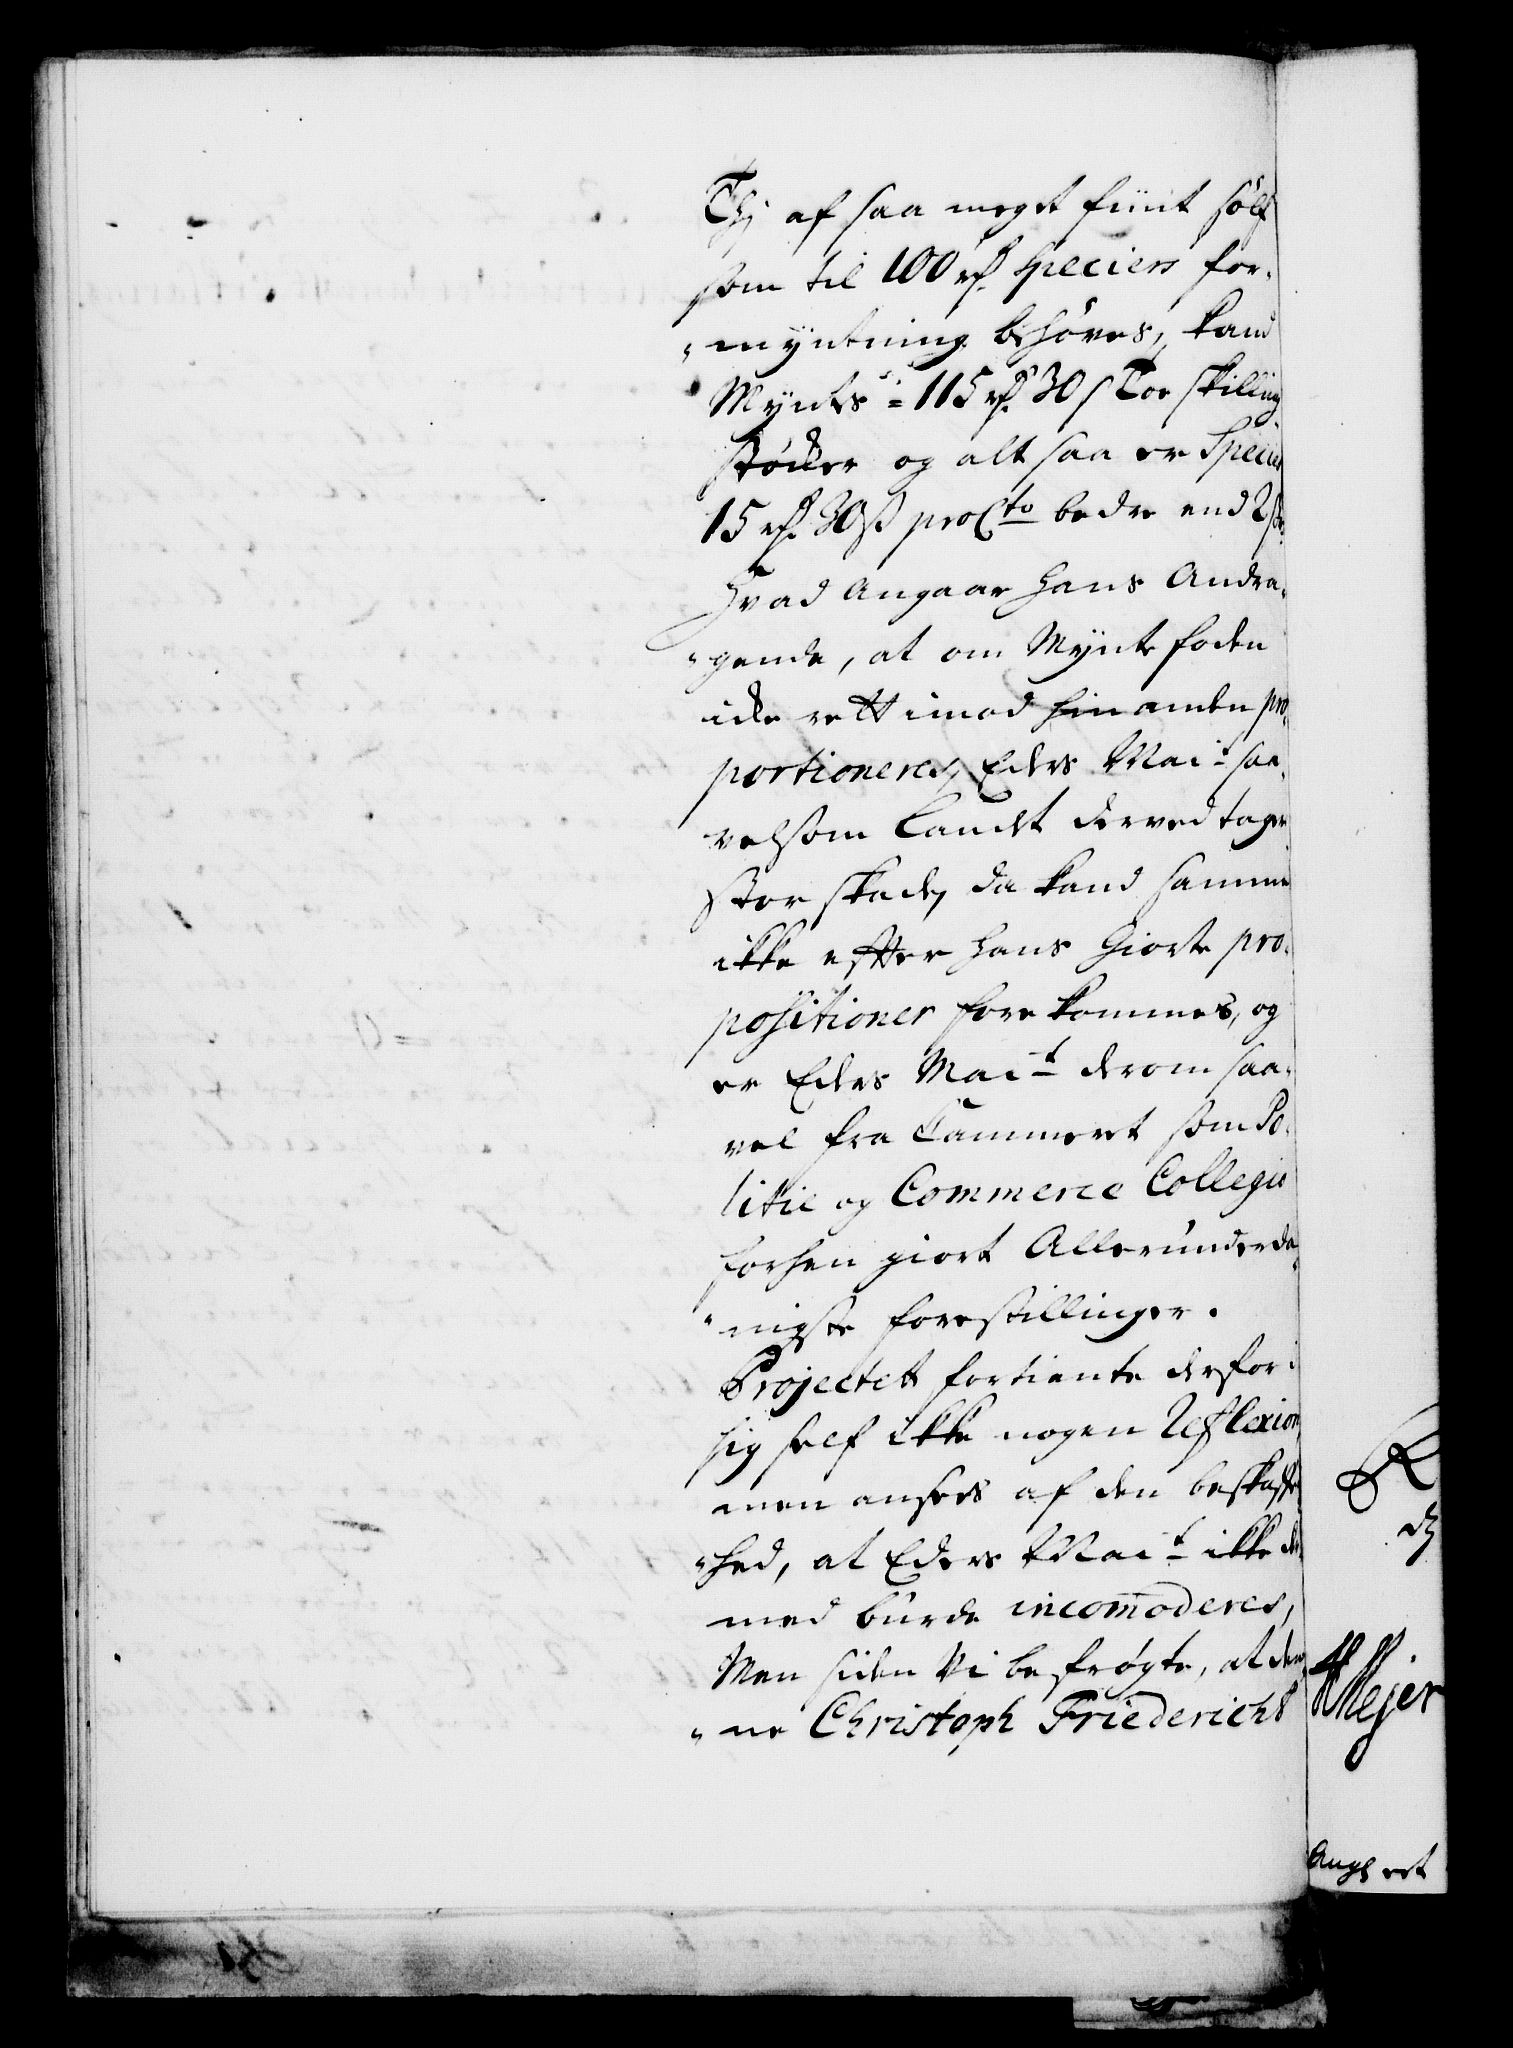 Thj af saa meget fiint sølf
som til 100 rd. Speciers for-
"myntning behøves, kand
Myntes = 115 rd. 30 s Toe skilling
støcker og altsaa er Specier
15 rd. 30 s pro Cto bedre end 2 s
Hvad Angaar hans Andra-
"gende, at om Myntefoden
icke rett imod hinanden pro-
portioneres, Eders Mait saa-
velsom Landet derved tager
stor skade, da kand samme
ikke efter hans Giorte pro-
positioner forekommes, og
er Eders Mait derom saa-
vel fra Cammeret som Po-
litie og Commerce Collegio
forhen giort Allerunderda-
"nigste forestillinger.
Projectet fortiente derfor i
sig self ikke nogen Reflexion
men ansees af den beskaffen
"hed, at Eders Mait ikke der
med burde incomoderes,
Men siden Vi befrøgte, at den
"ne Christoph Friederichs
Meyer